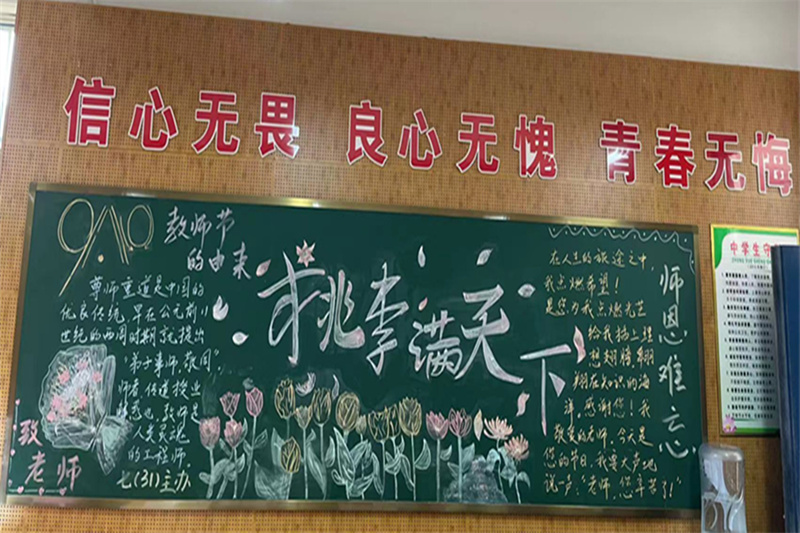 信心无畏 良心无愧 青春无悔
9.10
教师节
的由来
尊师重道是中国的
优良传统,早在公元前11
世纪的西周时期就提出
"弟子事师,敬同"
师者,传道授业
解惑也,教师是
人类灵魂
的工程师。
七(31)主办
致
老师
桃李满天下
在人生的旅途之中,
我点燃希望!
是您为我点燃光芒
给我插上理
想翅膀翱
翔在知识的海
洋,感谢您!我
敬爱的老师,今天是
您的节日,我要大声地
说一声:"老师,您辛苦了!"
师恩难忘
中学生守